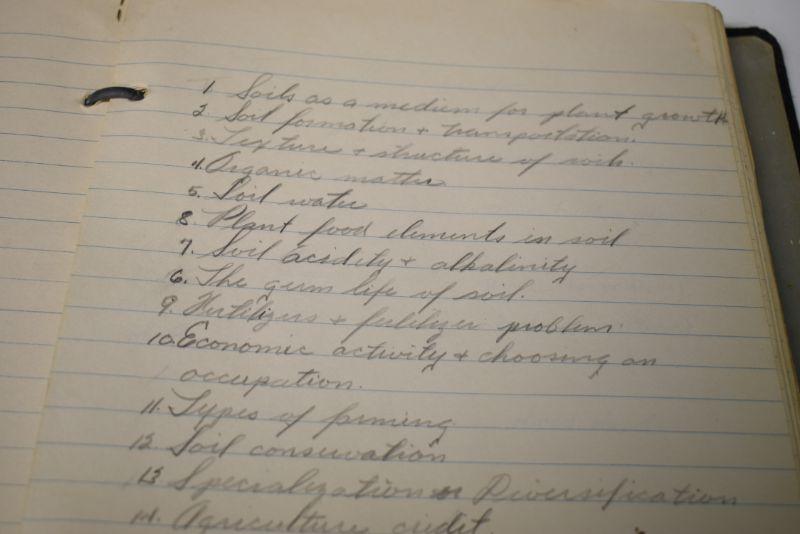 1 Soils as a medium for plant growth
2 Soil formation + transportation.
3. Texture + structure of soils.
4. Organic matter
5. Soil water
8. Plant food elements in soil
7. Soil acidity + alkalinity
6. The germ life of soil.
9. Fertilizers + fertilizer problem
10. Economic activity + choosing an
occupation.
11. Types of farming
12 Soil conservation
13 Specialization or Diversification
14. Agriculture credit.